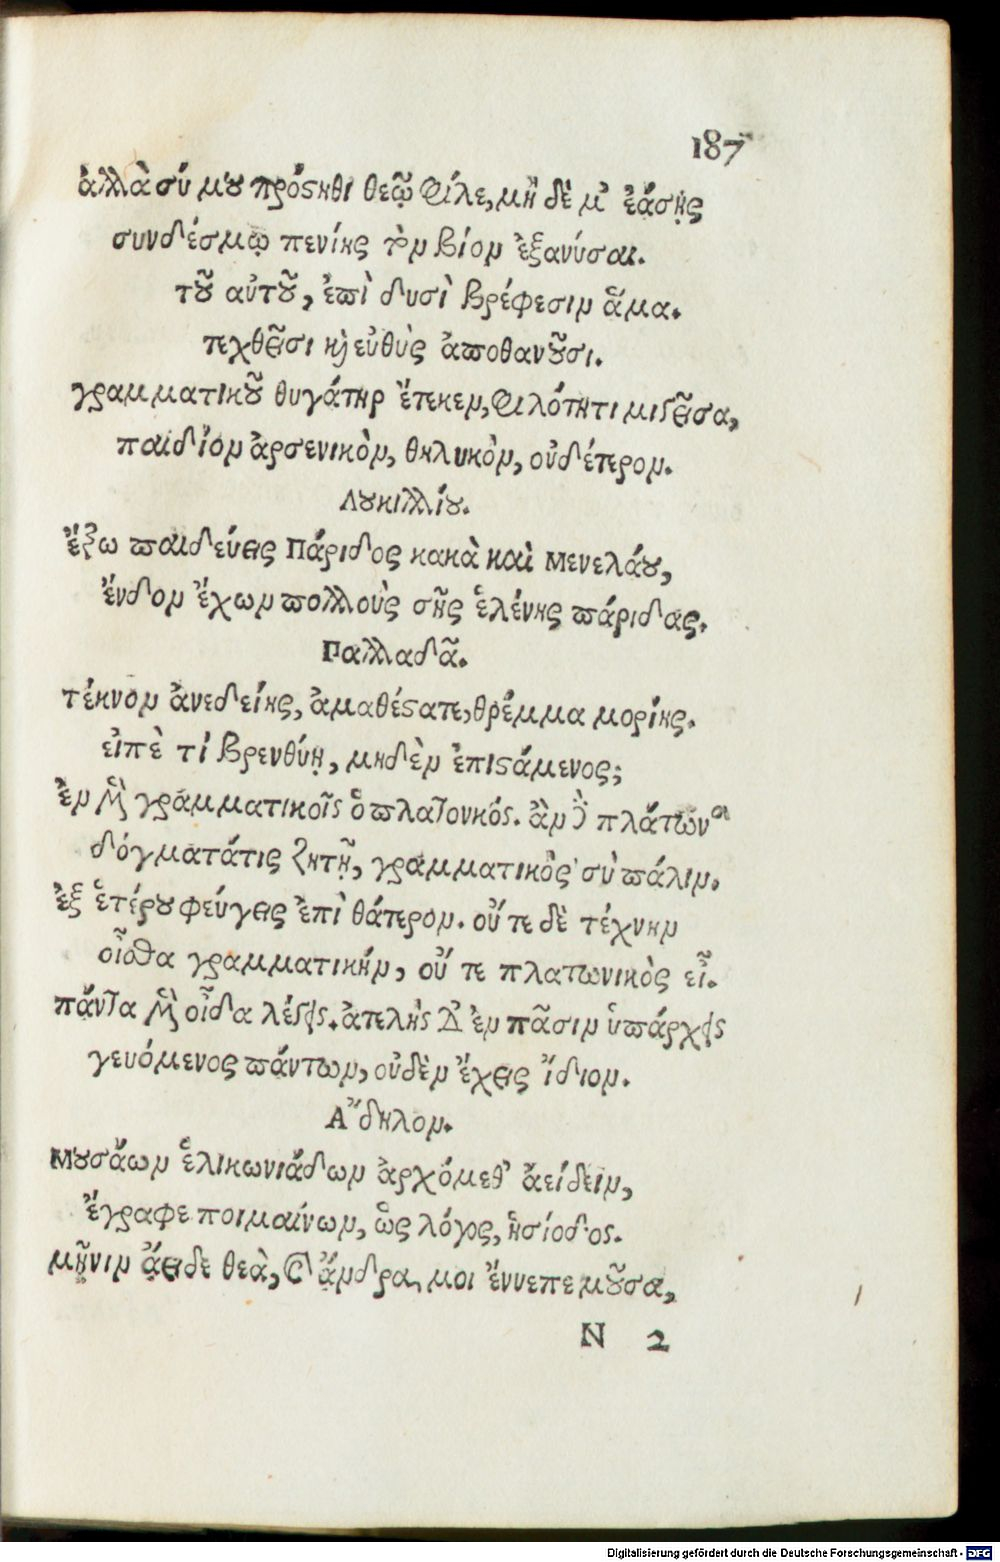 187
ἀλλὰ σύ μου πρόσηθι θεῷ φίλε, μὴ δὲ μ' ἐάσῃς
συνδέσμῳ πενίης τὸν βίον ἐξανύσαι.
τοῦ αὐτοῦ, ἐπὶ δυσὶ βρέφεσιν ἅμα.
τεχθεῖσι καὶ εὐθὺς ἀποθανοῦσι.
γραμματικοῦ θυγάτηρ ἔτεκεν, φιλότητι μιγεῖσα,
παιδίον ἀρσενικὸν, θηλυκὸν, οὐδέτερον.
Λουκιλλίου.
ἔξω παιδεύεις Πάριδος κακὰ καὶ Μενελάου,
ἔνδον ἔχων πολλοὺς σῆς ἑλένης πάριδας.
Παλλαδᾶ.
τέκνον ἀνεδείης, ἀμαθέστατε, θρέμμα μορίης.
εἰπὲ τί βρενθύῃ, μηδὲν ἐπιστάμενος;
ἐν μὲν γραμματικοῖς ὁ πλατονκός. ἂν δὲ πλάτωνος
δόγματά τις ζητῇ, γραμματικὸς σὺ πάλιν.
ἐξ ἑτέρου φεύγεις ἐπὶ θάτερον. οὔτε δὲ τέχνην
οἶσθα γραμματικήν, οὔ τε πλατωνικὸς εἶ.
πάντα μὲν οἶδα λέγεις. ἀτελὴς δ' ἐν πᾶσιν ὑπάρχεις
γευόμενος πάντων, οὐδὲν ἔχεις ἴδιον.
Ἄδηλον.
Μουσάων ἑλικωνιάδων ἀρχόμεθ' ἀείδειν,
ἔγραφε ποιμαίνων, ὡς λόγος, ἡσίοδος.
μῆνιν ἄειδε θεὰ, καὶ ἄνδρα μοι ἔννεπε μοῦσα,
N 2
Digitalisierung gefördert durch die Deutsche Forschungsgemeinschaft - DFG